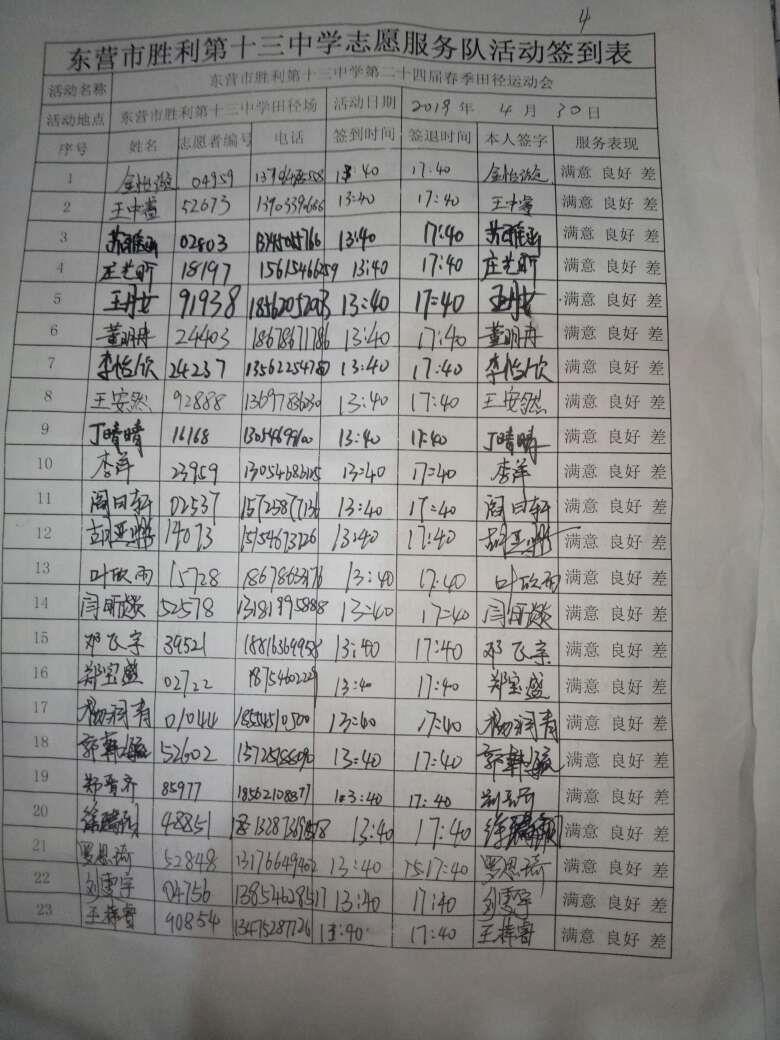 4
东营市胜利第十三中学志愿服务队活动签到表
活动名称 东营市胜利第十三中学第二十四届春季田径运动会
活动地点 东营市胜利第十三中学田径场 活动日期 2019 年 4 月 30 日
序号 姓名 志愿者编号 电话 签到时间 签退时间 本人签字 服务表现
1 04959 13:40 17:40 满意 良好 差
2 王中睿 52673 13:40 17:40 王中睿 满意 良好 差
3 苏雅函 02803 13:40 17:40 苏雅函 满意 良好 差
4 庄艺昕 18197 13:40 17:40 庄艺昕 满意 良好 差
5 91938 13:40 17:40 满意 良好 差
6 董明冉 24403 18678671786 13:40 17:40 董明冉 满意 良好 差
7 李怡欣 24237 13:40 17:40 李怡欣 满意 良好 差
8 王安然 92888 13:40 17:40 王安然 满意 良好 差
9 丁晴晴 16168 13:40 17:40 丁晴晴 满意 良好 差
10 李洋 23959 13054686125 13:40 17:40 李洋 满意 良好 差
11 阎日轩 02537 15725877136 13:40 17:40 阎日轩 满意 良好 差
12 14073 15154673726 13:40 17:40 满意 良好 差
13 叶欣雨 15728 13:40 17:40 叶欣雨 满意 良好 差
14 52578 13181995888 13:40 17:40 满意 良好 差
15 邓飞宇 39521 18816369958 13:40 17:40 邓飞宇 满意 良好 差
16 郑宝盛 02722 18754602229 13:40 17:40 郑宝盛 满意 良好 差
17 杨润青 01044 13:40 17:40 杨润青 满意 良好 差
18 52602 13:40 17:40 满意 良好 差
19 郑晋齐 85977 18562108877 13:40 17:40 满意 良好 差
20 48851 13:40 17:40 满意 良好 差
21 罗思琦 52848 13176649402 13:40 17:40 罗思琦 满意 良好 差
22 刘雪宇 04756 13854628517 13:40 17:40 刘雪宇 满意 良好 差
23 王梓睿 90854 13475287726 13:40 17:40 王梓睿 满意 良好 差